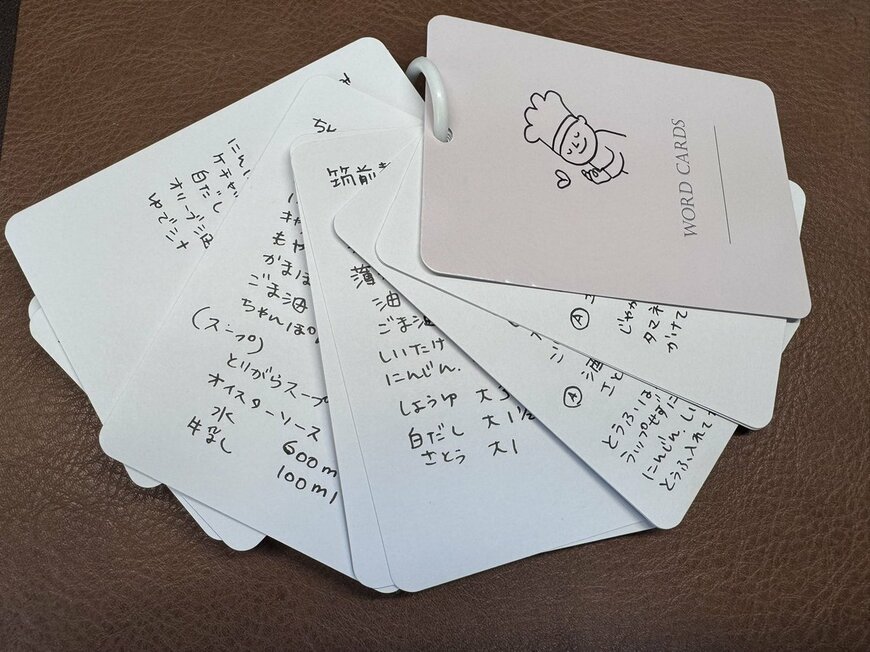 WORD CARDS
にん
ケチャ
白だし
オリーブ油
ゆで
キャ
もや
かまぼ
ごま油
ちゃんぽん
(スープ)
とりがらスープ
オイスターソース
水 600m
牛乳 100ml
筑前
薄
油
ごま油
しいたけ
にんじん.
しょうゆ 大3
白だし 大1½
さとう 大1
Ⓐ
とうふは
ラップせずに
にんじん. しい
とうふ入れて
Ⓐ
じゃが
タマネ
かけて